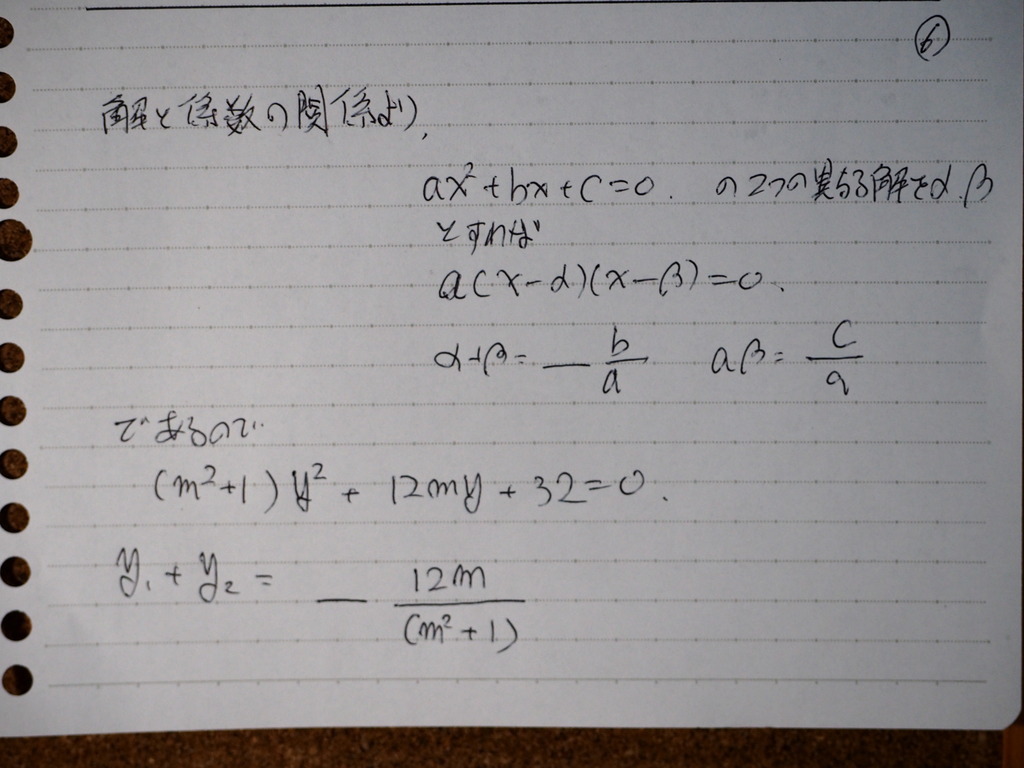 ⑥
解と係数の関係より,
ax²+bx+c=0. の2つの異なる解をα.β
とすれば
a(x-α)(x-β)=0.
α+β= - b/a aβ= c/a
であるので
(m²+1)y² + 12my + 32=0.
y₁ + y₂ = - 12m/(m²+1)